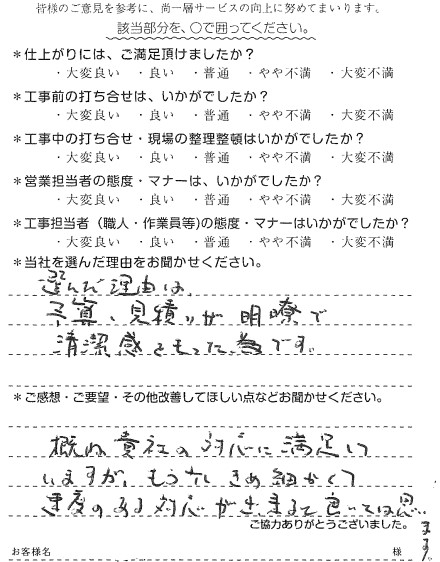 皆様のご意見を参考に、尚一層サービスの向上に努めてまいります。
該当部分を、○で囲ってください。
*仕上がりには、ご満足頂けましたか?
・大変良い ・良い ・普通 ・やや不満 ・大変不満
*工事前の打ち合せは、いかがでしたか?
・大変良い ・良い ・普通 ・やや不満 ・大変不満
*工事中の打ち合せ・現場の整理整頓はいかがでしたか?
・大変良い ・良い ・普通 ・やや不満 ・大変不満
*営業担当者の態度・マナーは、いかがでしたか?
・大変良い ・良い ・普通 ・やや不満 ・大変不満
*工事担当者(職人・作業員等)の態度・マナーはいかがでしたか?
・大変良い ・良い ・普通 ・やや不満 ・大変不満
*当社を選んだ理由をお聞かせください。
選んだ理由は、
予算、見積りが明瞭で
清潔感をもった為です。
*ご感想・ご要望・その他改善してほしい点などお聞かせください。
概ね貴社の対応に満足して
いますが、もう少しきめ細かくて
速度のある対応が出来ると良いとは思います。
ご協力ありがとうございました。
お客様名 様